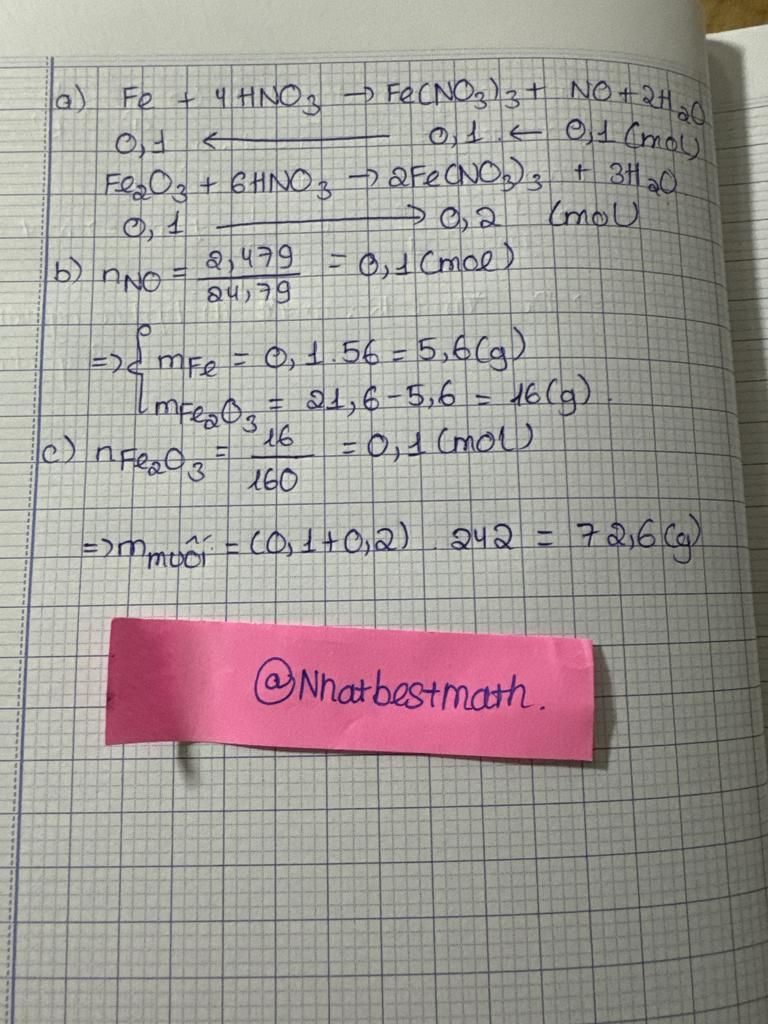 a) Fe + 4HNO₃ → Fe(NO₃)₃ + NO + 2H₂O
0,1 ← 0,1 ← 0,1 (mol)
Fe₂O₃ + 6HNO₃ → 2Fe(NO₃)₃ + 3H₂O
0,1 → 0,2 (mol)
b) nNO = 2,479/24,79 = 0,1 (mol)
=> { mFe = 0,1.56 = 5,6(g)
mFe₂O₃ = 21,6-5,6 = 16(g).
c) nFe₂O₃ = 16/160 = 0,1 (mol)
=> mmuối = (0,1+0,2).242 = 72,6(g)
@Nhatbestmath.